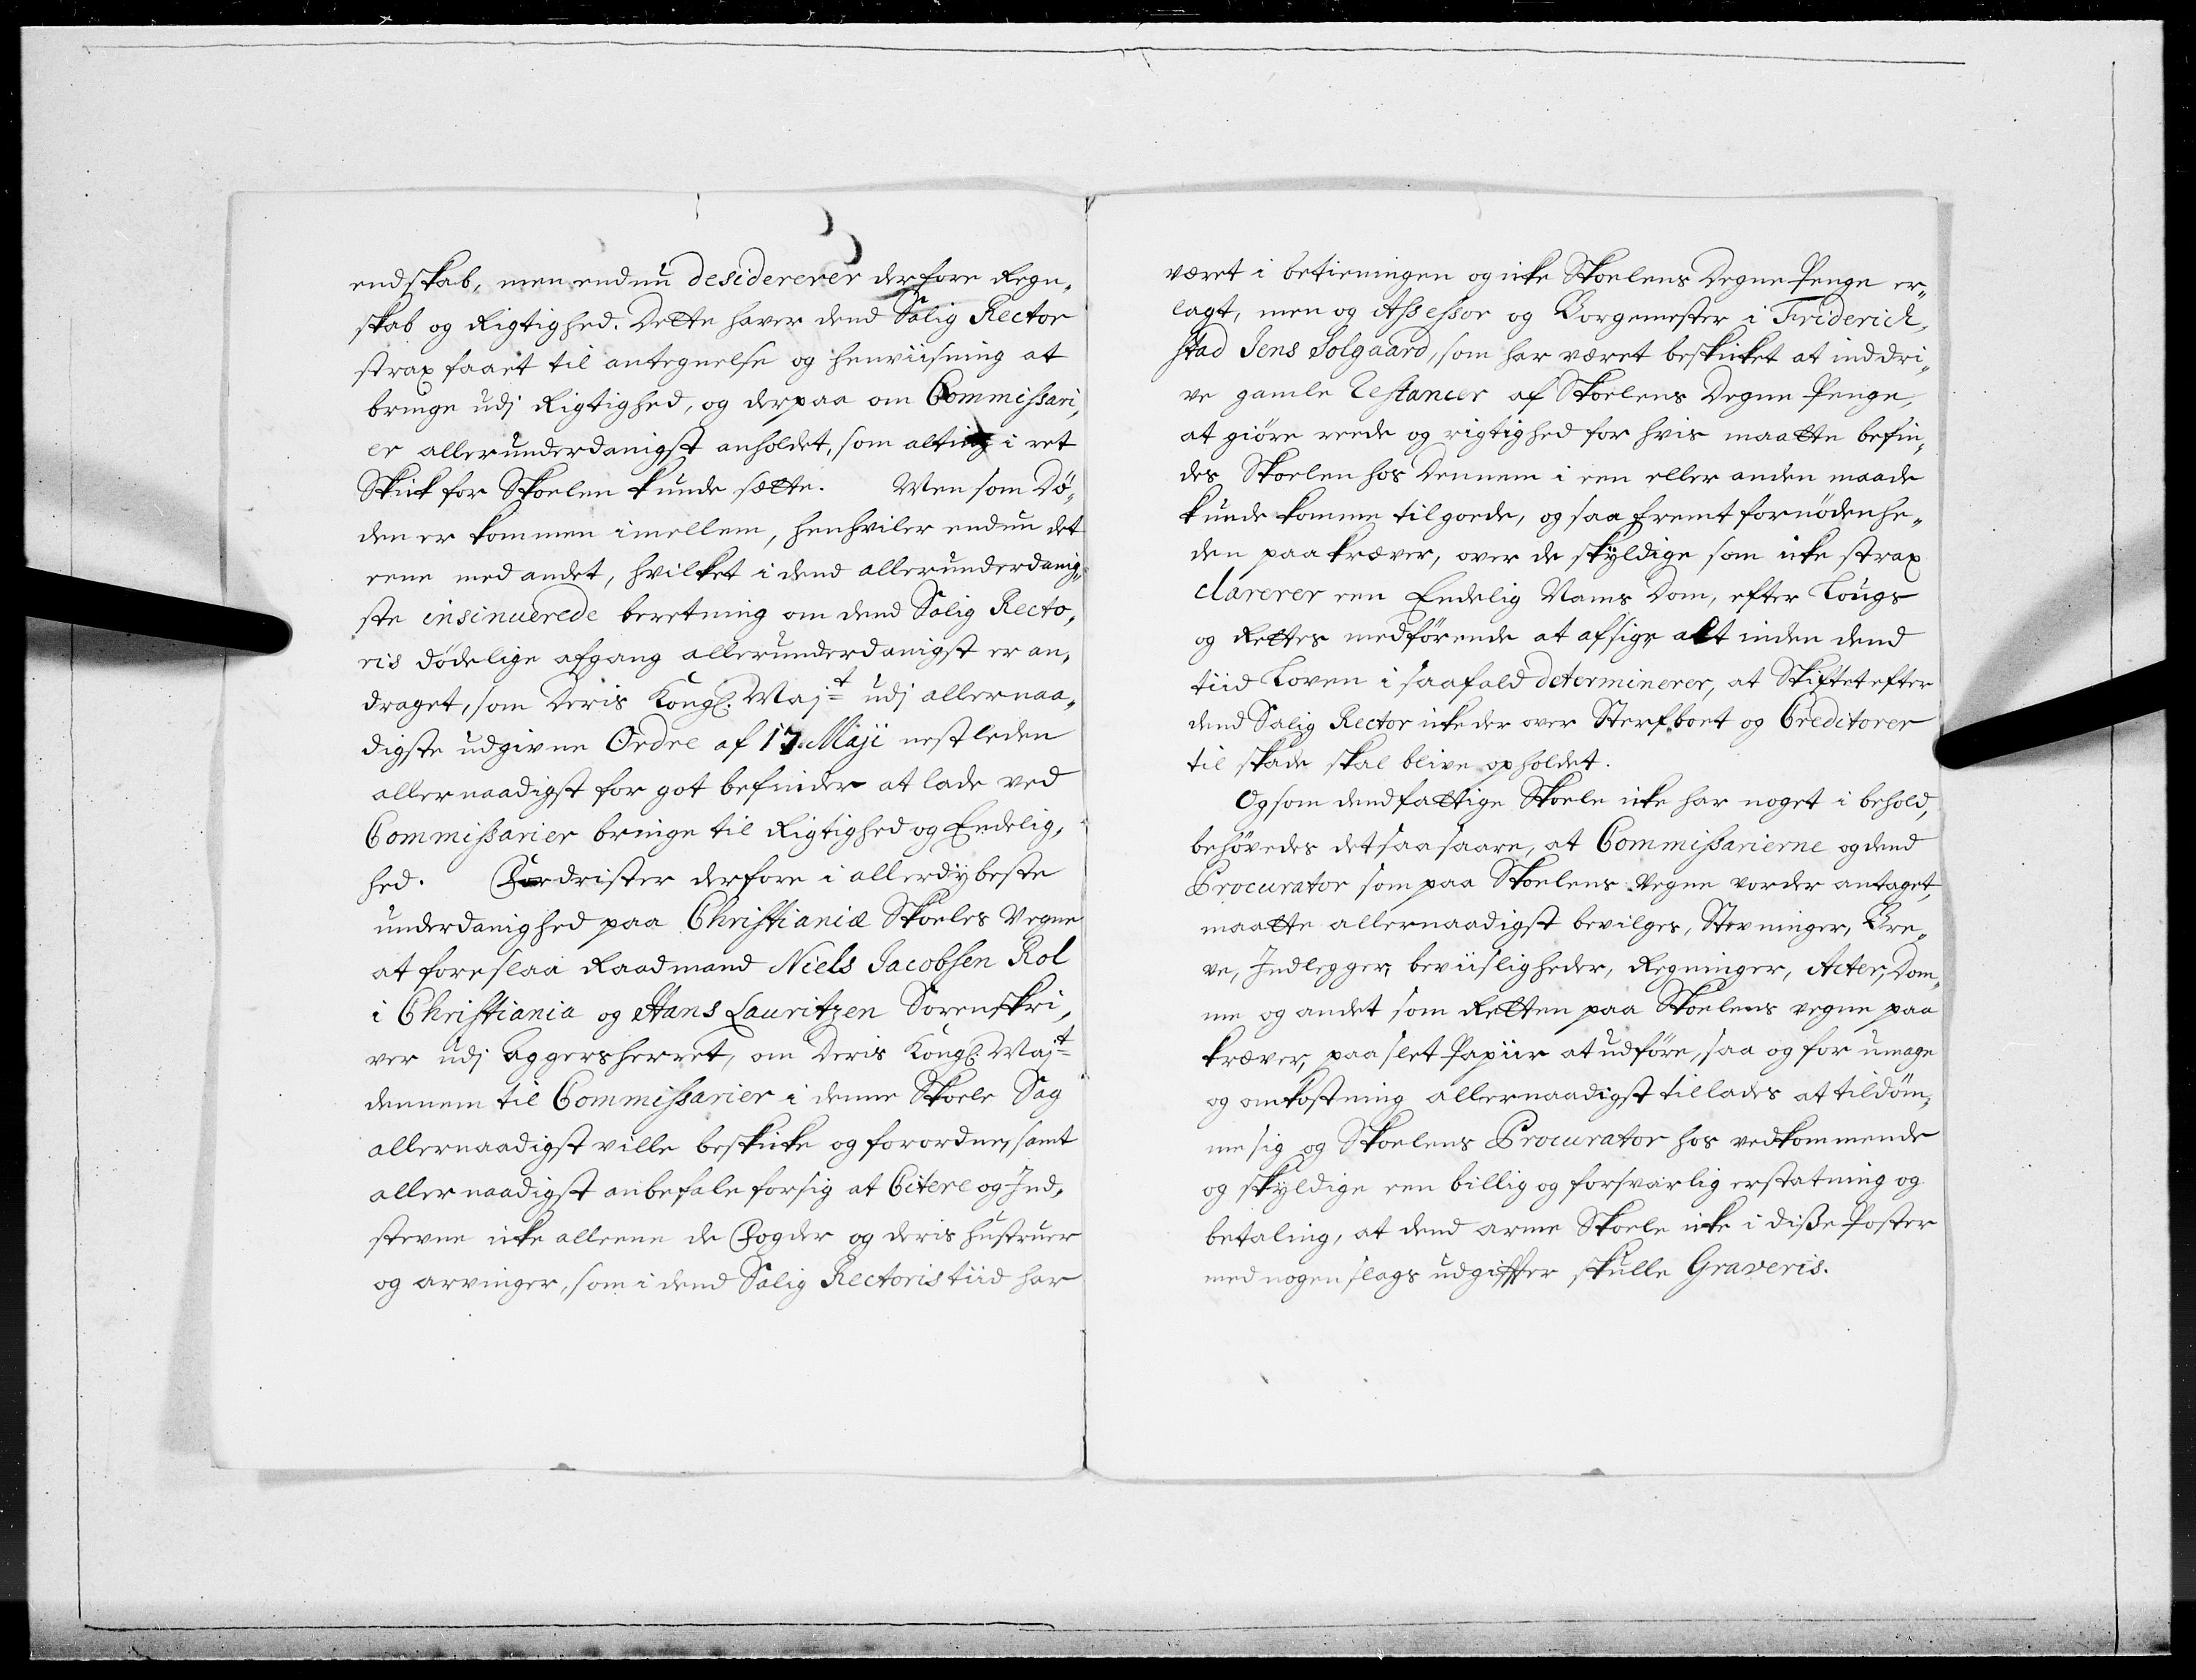 endskab, men endnu desidererer derfore Regn„
skab og Rigtighed. Dette haver dend Salig Rector
strax faaet til antegnelse og henviisning at
bringe udj Rigtighed, og derpaa om Commissari„
er allerunderdanigst anholdet, som alting i ret
Skick for Skoelen kunde sætte. Men som Dö„
den er kommen imellem, henhviler endnu det
eene med andet, hvilket i dend allerunderdanig„
ste insinuerede beretning om dend Salig Recto„
ris dödelige afgang allerunderdanigst er an„
draget, som Deris Kongl. Majt udj allernaa„
digste udgivne Ordre af 17. Maji nestleden
allernaadigst for got befinder at lade ved
Commissarier bringe til Rigtighed og Endelig„
hed. Fordrister derfore i allerdybeste
underdanighed paa Christianiæ Skoeles Vegne
at foreslaa Raadmand Niels Jacobsen Rol
i Christiania og Hans Lauritzen Sorenskri„
ver udj Aggersherret, om Deris Kongl. Majt
dennem til Commissarier i denne Skoele Sag
allernaadigst ville beskicke og forordne, samt
allernaadigst anbefale forsig at Citere og Ind„
stevne icke alleene de Fogder og deris hustruer
og arvinger, som i dend Salig Rectoris tiid har
været i betieningen og icke Skoelens Degne Penge er„
lagt, men og Assessor og Borgemester i Friderich„
stad Jens Solgaard, som har været beskicket at inddri„
ve gamle Restancer af Skoelens Degne Penge,
at giöre reede og rigtighed for hvis maatte befin„
des Skoelen hos Dennem i een eller anden maade
kunde komme til goede, og saa fremt fornödenhe„
den paa kræver, over de skyldige som icke strax
clarerer een Endelig Nams Dom, efter Lougs
og Rettes medförende at afsige alt inden dend
tiid Loven i saafald determinerer, at Skiftet efter
dend Salig Rector icke der over Sterfboet og Creditorer
til skade skal blive opholdet.
Og som dend fattige Skoele icke har noget i behold,
behövedes det saa saare, at Commissarierne og dend
Procurator som paa Skoelens Vegne vorder antaget,
maatte allernaadigst bevilges, Stevninger, Bre„
ve, Indlegger, beviisligheder, Regninger, Acter, Dom„
me og andet som Retten paa Skoelens vegne paa
kræver, paa slet Papiir at udföre, saa og for umage
og omkostning allernaadigst tillades at tildöm„
me sig og Skoelens Procurator hos vedkommende
og skyldige een billig og forsvarlig erstatning og
betaling, at dend arme Skoele icke i disse Poster
med nogen slags udgiffter skulle Graveris.